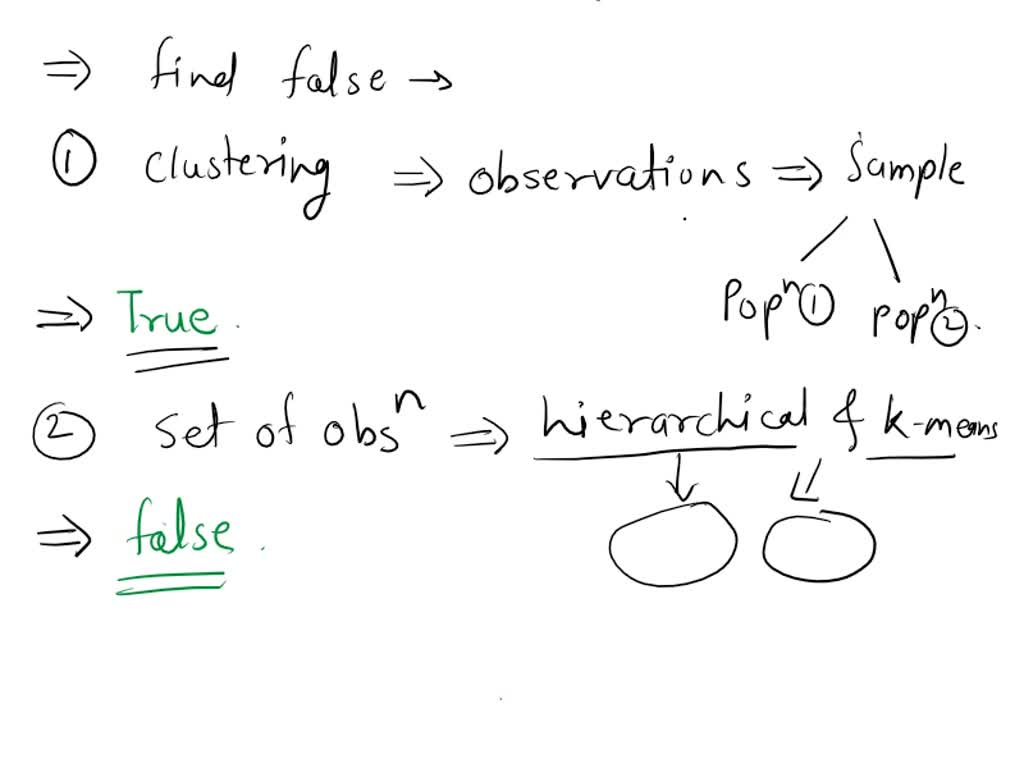 ⇒ find false →
① clustering ⇒ observations ⇒ Sample
Popⁿ① popⁿ②.
⇒ True.
② set of obsⁿ ⇒ hierarchical & k-means
⇒ false.